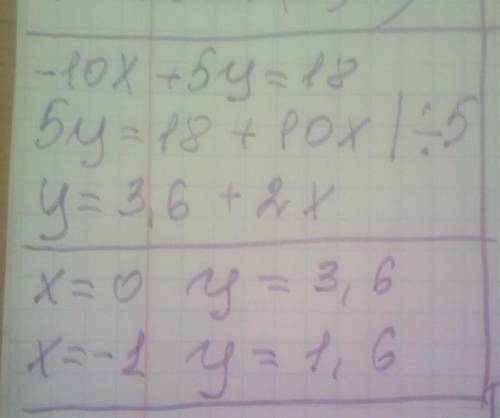 -10x +5y=18
5y=18 + 10x | ÷5
y= 3,6 + 2x
x=0 y = 3,6
x=-1 y=1,6